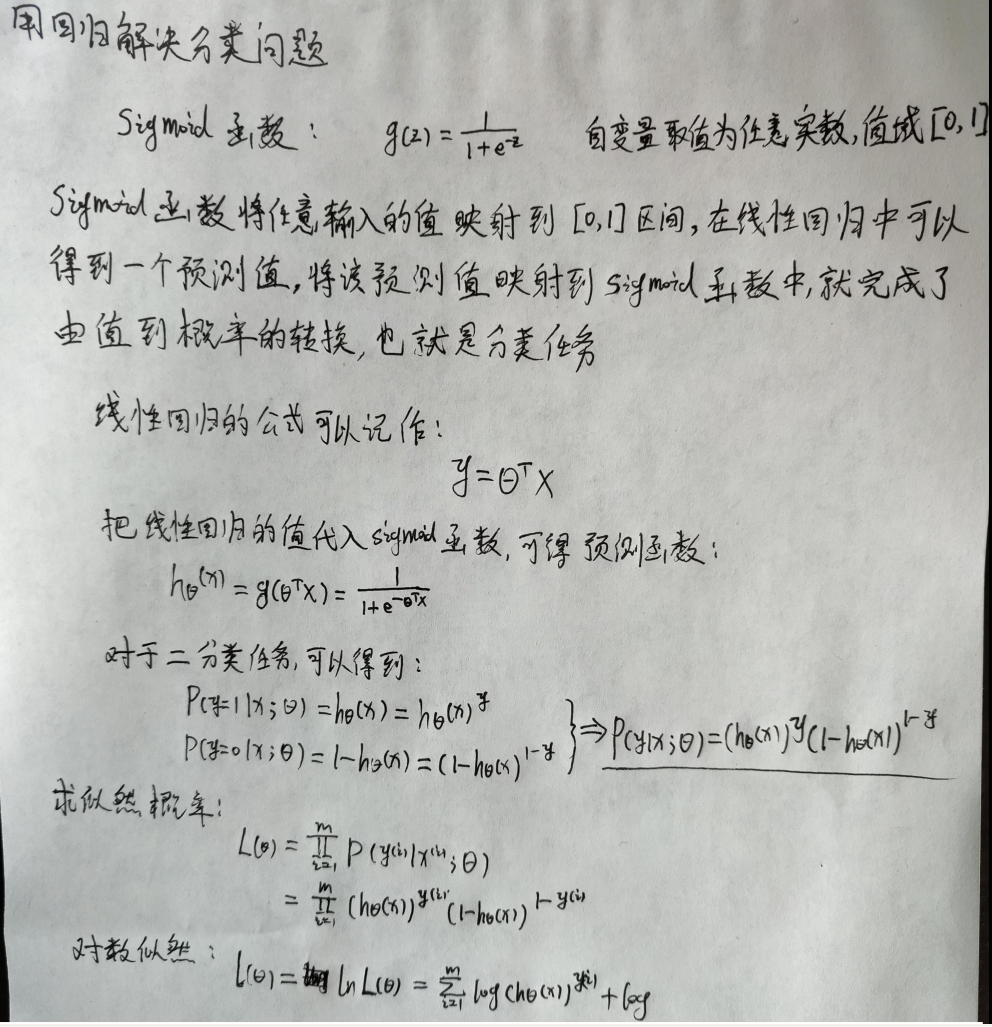 用回归解决分类问题
Sigmoid 函数： g(z) = \frac{1}{1+e^{-z}} 自变量取值为任意实数,值域[0,1]
Sigmoid 函数将任意输入的值映射到 [0,1]区间,在线性回归中可以
得到一个预测值,将该预测值映射到 sigmoid 函数中,就完成了
由值到概率的转换,也就是分类任务
线性回归的公式可以记作：
y=θ^T X
把线性回归的值代入 sigmoid 函数,可得预测函数：
h_θ(x) = g(θ^T X) = \frac{1}{1+e^{-θ^T X}}
对于二分类任务,可以得到：
P(y=1|x;θ) = h_θ(x) = h_θ(x)^y
P(y=0|x;θ) = 1-h_θ(x) = (1-h_θ(x))^{1-y} } ⇒ P(y|x;θ)=(h_θ(x))^y (1-h_θ(x))^{1-y}
求似然概率：
L(θ) = \prod_{i=1}^{m} P(y^{(i)}|x^{(i)};θ)
= \prod_{i=1}^{m} (h_θ(x))^{y^{(i)}} (1-h_θ(x))^{1-y^{(i)}}
对数似然： l(θ) = ln L(θ) = \sum_{i=1}^{m} log(h_θ(x))^{y^{(i)}} + log